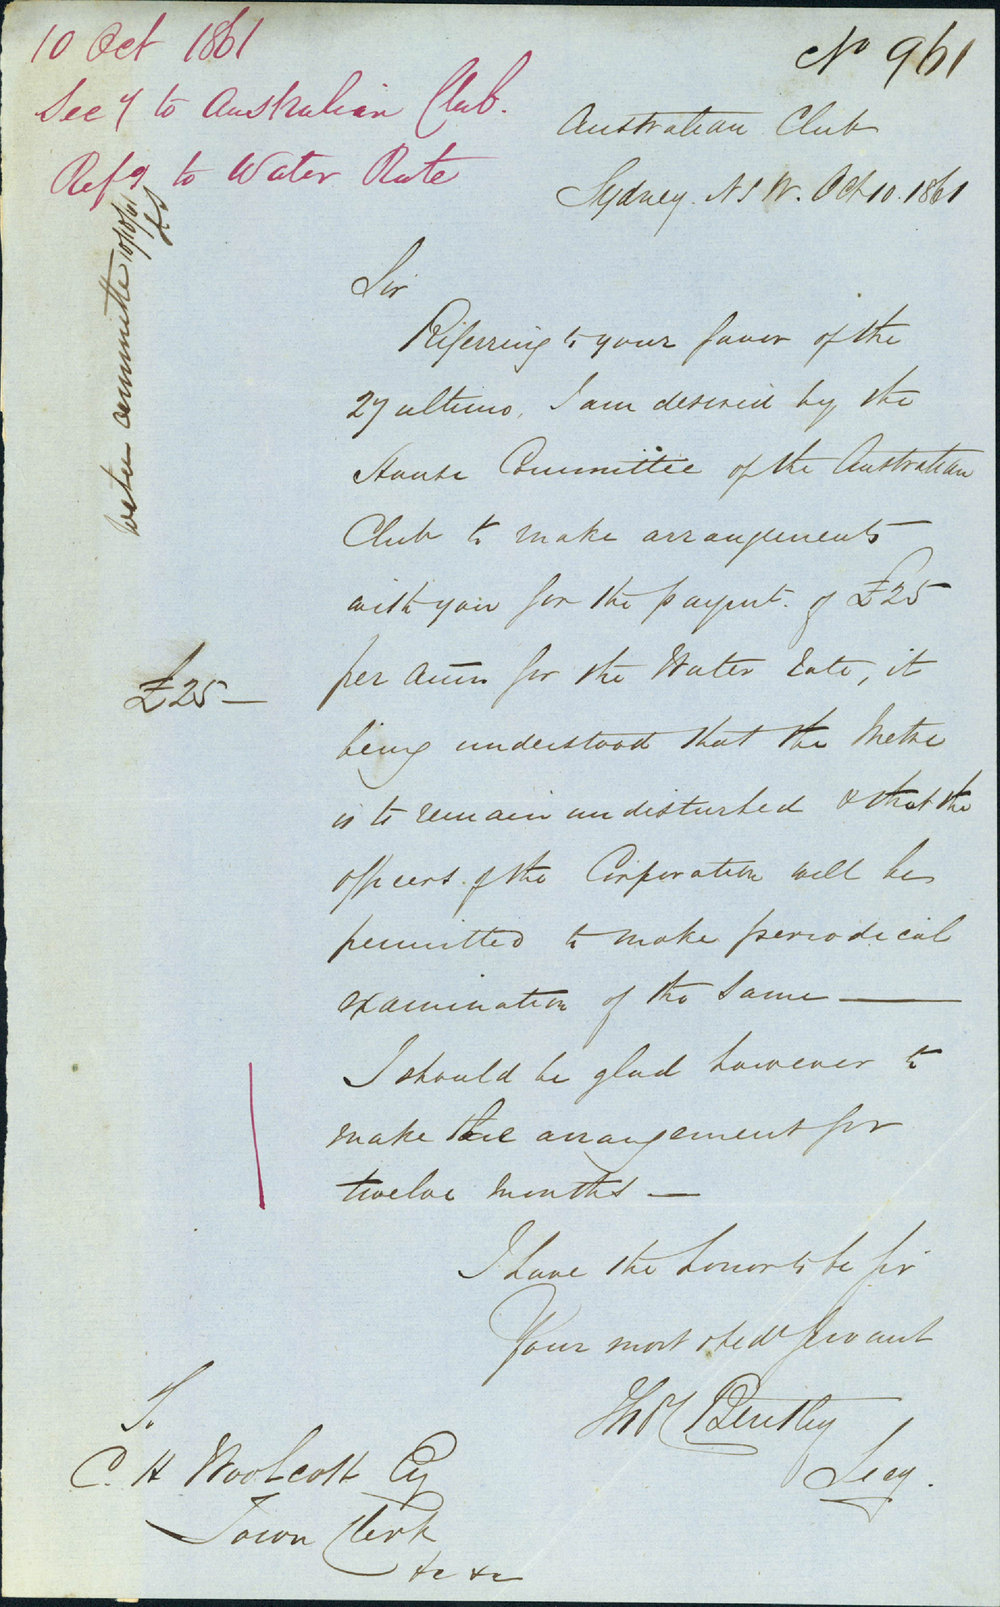 10 Oct 1861
Secy to Australian Club.
Refg to Water Rate
No 961
Australian Club
Sydney. N S W. Oct 10. 1861
Water Committee 10/10/61
Sir
Referring to your favor of the
27 ultimo, I am desired by the
House Committee of the Australian
Club to make arrangements
with you for the paymt. of £25
£25 —
per Ann for the Water Rate, it
being understood that the Metre
is to remain undisturbed & that the
officers of the Corporation will be
permitted to make periodical
examination of the same —
I should be glad however to
make the arrangement for
twelve months —
I have the honor to be Sir
Your most obedt Servant
Bentley
Secy.
To
C. H Woolcott Esq
Town Clerk
&c &c